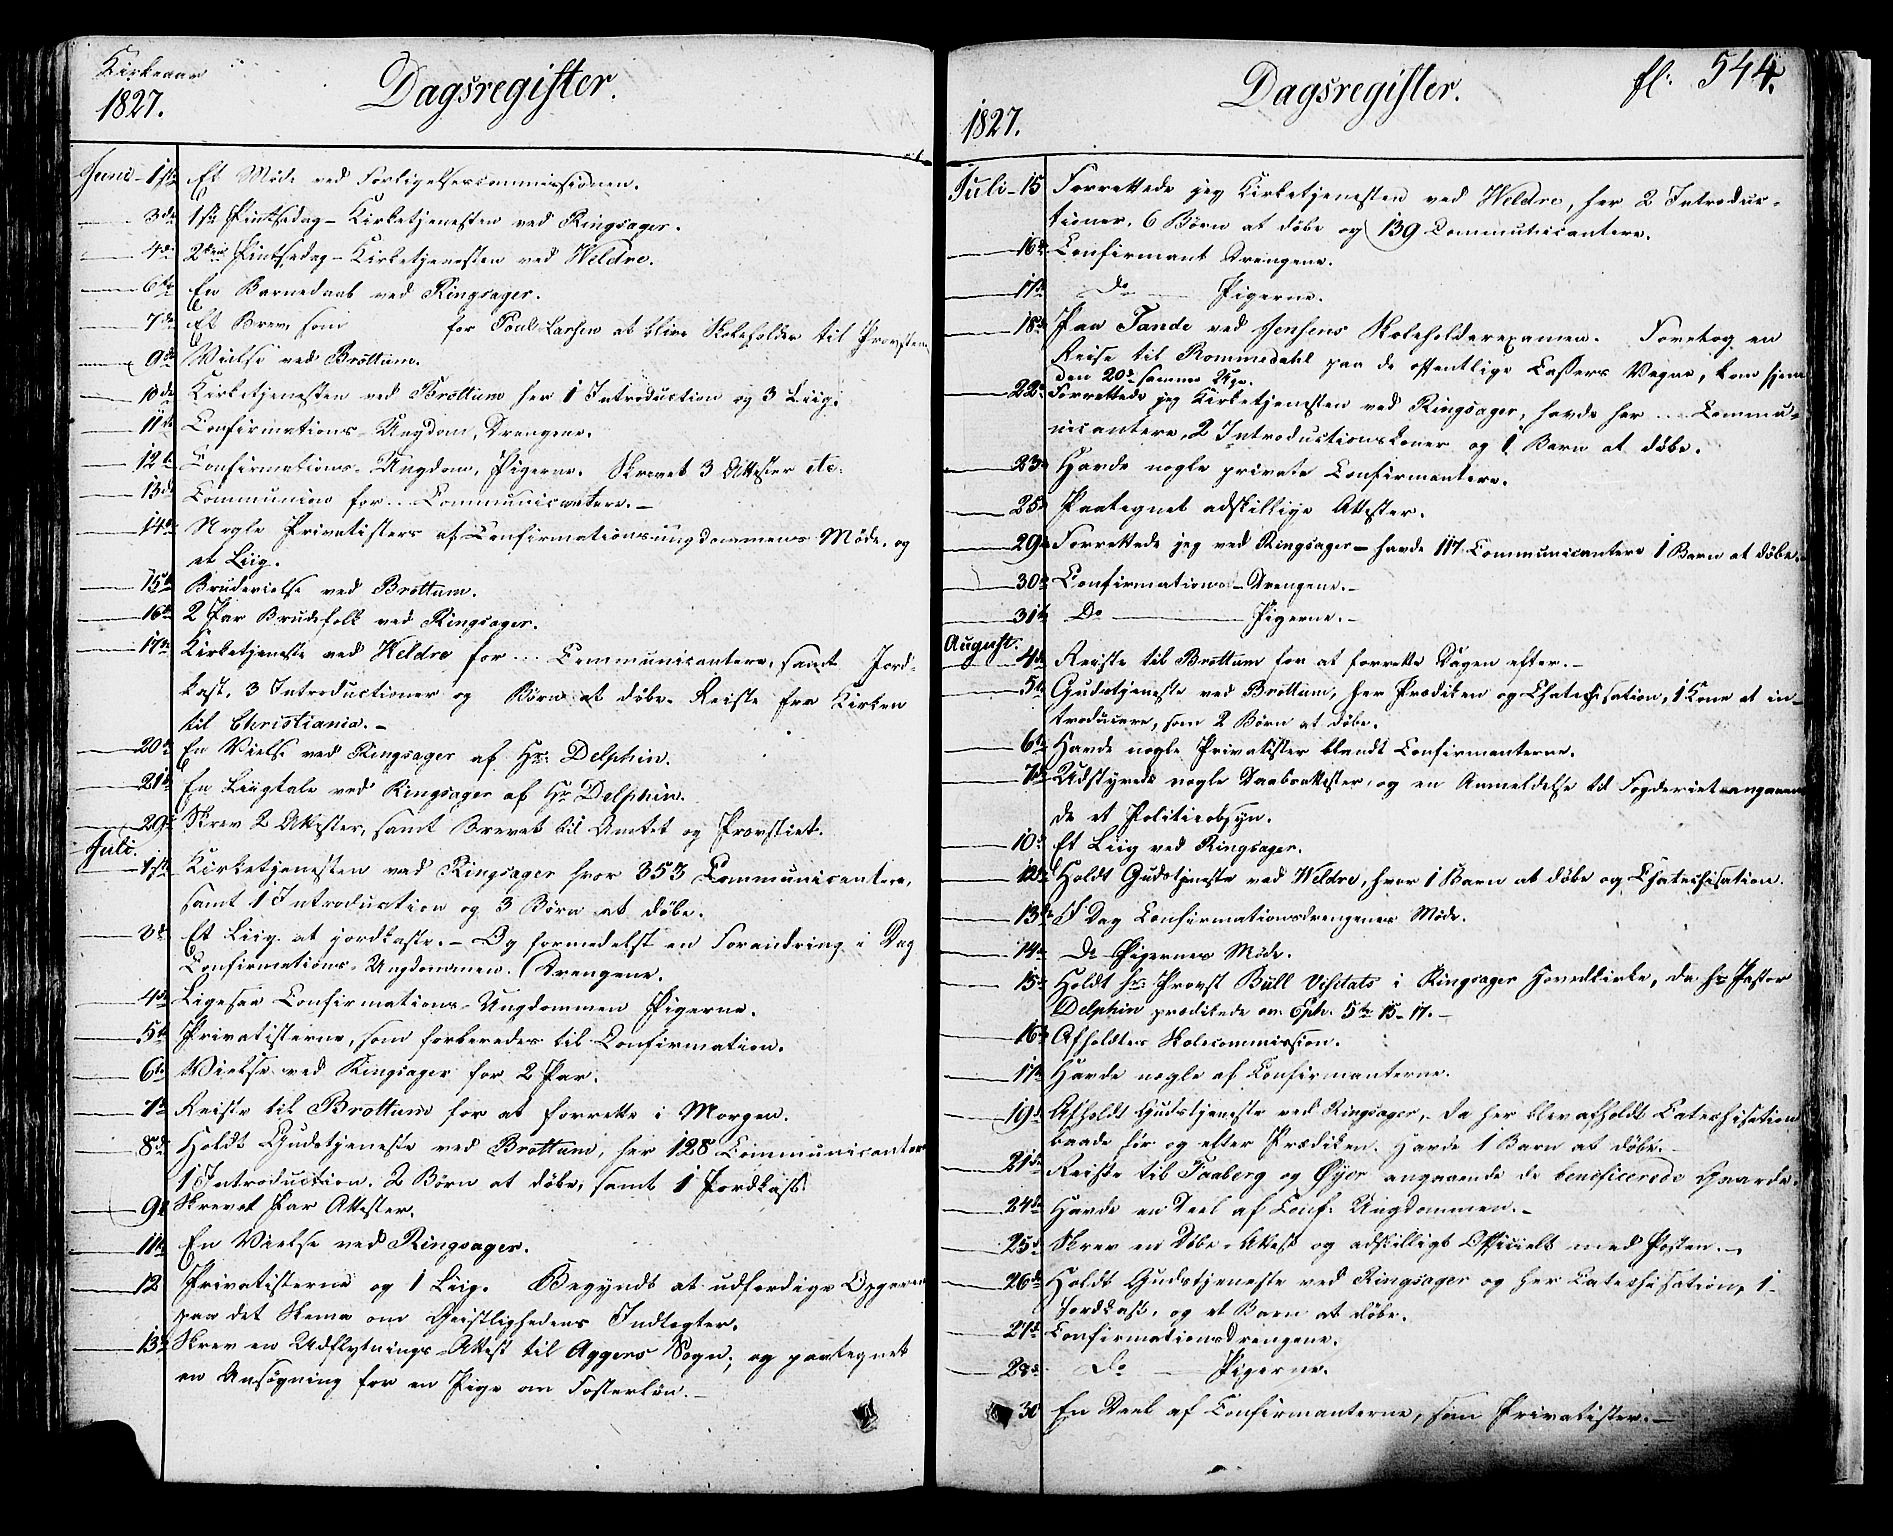 Kirkeaar
1827.
Dagsregister.
Juni - 1ste Et Møde ved Forligelsescommissionen.
3die 1ste Pintsedag - Kirketjenesten ved Ringsager.
4de 2den Pintsedag - Kirketjenesten ved Weldre.
6te En Barnedaab ved Ringsager.
7de Et Brev, som for Poul Larsen at blive Skoleholder til Provsten.
9de Vielse ved Brøttum.
10de Kirketjenesten ved Brøttum her 1 Introduction og 3 Liig.
11te Confirmations-Ungdom, Drengene.
12te Confirmations-Ungdom, Pigerne. Skrevet 3 Attester etc.
13de Communion for ... Communicantere. -
14de Nogle Privatisters af Confirmationsungdommens Møde, og
et Liig.
15de Brudevielse ved Brøttum.
16de 2 Par Brudefolk ved Ringsager.
17de Kirketjeneste ved Weldre for ... Communicantere, samt Jord-
kast, 3 Introductioner og Børn at døbe. Reiste fra Kirken
til Christiania. -
20de En Vielse ved Ringsager af Hr: Delphin.
21de En Liigtale ved Ringsager af Hr Delphin.
29de Skrev 2 Attester, samt Brevet til Amtet og Provstiet.
Juli.
1ste Kirketjenesten ved Ringsager hvor 353 Communicantere,
samt 1 Introduction og 3 Børn at døbe.
3de Et Liig at jordkaste. - Og formedelst en Forandring i Dag
Confirmations-Ungdommen. (Drengene.
4de Ligesaa Confirmations-Ungdommen Pigerne.
5te Privatisterne, som forberedes til Confirmation.
6te Vielse ved Ringsager for 2 Par.
7de Reiste til Brøttum for at forrette i Morgen.
8de Holdt Gudstjeneste ved Brøttum, her 128 Communicantere
1 Introduction, 2 Børn at døbe, samt 1 Jordkast.
9de Skrevet Par Attester.
11te En Vielse ved Ringsager.
12 Privatisterne og 1 Liig. Begyndt at udferdige Opgaver
paa det Skema om Geistlighedens Indtegter.
13de Skrev en Udflytnings-Attest til Aggers Sogn, og paategnet
en Ansøgning for en Pige om Fosterløn. -
1827.
Dagsregister.
fl. 544.
Juli - 15 Forrettede jeg Kirketjenesten ved Weldre, her 2 Introduc-
tioner, 6 Børn at døbe og 139 Communicantere.
16de Confirmant Drengene.
17de Do - Pigerne.
18de Paa Tande ved Jensens Skoleholderexamen. Foretog en
Reise til Rommedahl paa de offentlige Cassers Vegne, kom hjem
den 20de samme
22de Forrettede jeg Kirketjenesten ved Ringsager, havde her ... Commu-
nicantere, 2 Introductionskoner og 1 Barn at døbe.
23de Havde nogle private Confirmantere.
25de Paategnet adskillige Attester.
29de Forrettede jeg ved Ringsager - havde 117 Communicantere 1 Barn at døbe.
30te Confirmations-Drengene. -
31te Do - Pigerne. -
August.
4de Reiste til Brøttum for at forrette Dagen efter. -
5te Gudstjeneste ved Brøttum, her Prædiken og Chatechisation, 1 Kone at in-
troducere, som 2 Børn at døbe.
6te Havde nogle Privatister blandt Confirmanterne.
7de Udstyrede nogle Daabsattester, og en Anmeldelse til Fogderiet angaaen-
de et Politieopsyn.
10de Et Liig ved Ringsager.
12te Holdt Gudstjeneste ved Weldre, hvor 1 Barn at døbe og Chatechisation.
13de I Dag Confirmationsdrengenes Møde.
14de Do Pigernes Møde.
15de Holdt Hr: Provst Bull Visitats i Ringsager Hovedkirke, da Hr Pastor
Delphin prædikede om Eph. 5te 15-17. -
16de Afholdtes Skolecommission.
17de Havde nogle af Confirmanterne.
19de Afholdt Gudstjeneste ved Ringsager, da her blev afholdt Catechisation
baade før og efter Prædiken. Havde 1 Barn at døbe. -
21de Reiste til Faaberg og Øyer angaaende de beneficerede Gaarde.
24de Havde en Deel af Conf: Ungdommen. -
25de Skrev en Døbe-Attest og adskilligt Officielt med Posten. -
26de Holdt Gudstjeneste ved Ringsager og her Catechisation, 1
Jordkast, og et Barn at døbe.
27de Confirmationsdrengene.
28de Do - Pigerne.
30 En Deel af Confirmanterne, som Privatister. -